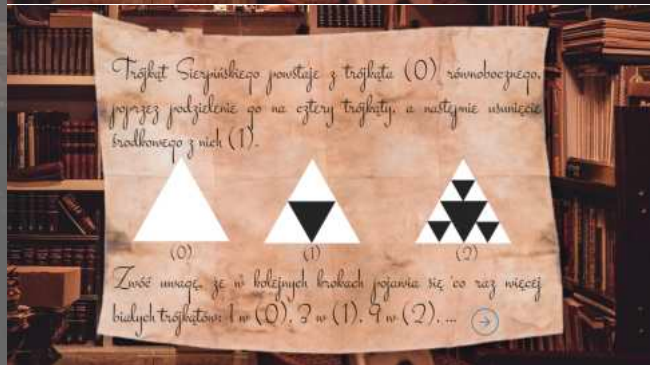 Trójkąt Sierpińskiego powstaje z trójkąta (0) równobocznego,
poprzez podzielenie go na cztery trójkąty, a następnie usunięcie
środkowego z nich (1).
(0) (1) (2)
Zwóć uwagę, że w kolejnych krokach pojawia się co raz więcej
białych trójkątów: 1 w (0), 3 w (1), 9 w (2), ...